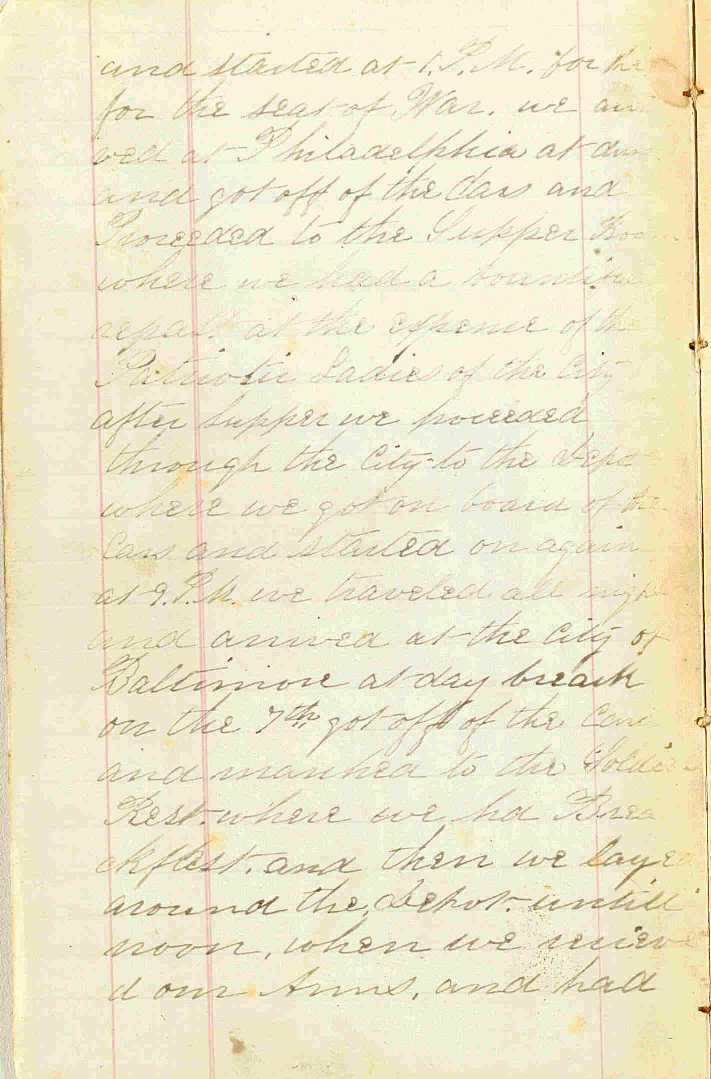 and started at 1. P.M. for the
for the seat of War. we arri
ved at Philadelphia at
and got off of the Cars and
Proceeded to the Supper Room
where we had a bountiful
repast at the expense of the
Patriotic Ladies of the City
after Supper we proceeded
through the City to the Depo
where we got on board of the
Cars and started on again
at 9. P.M. we traveled all night
and arrived at the City of
Baltimore at day breack
on the 7th got off of the Cars
and marched to the Soldiers
Rest. where we hd Brea
ckfest. and then we layed
around the, Depot. untill
noon, when we recieve
d our Arms, and had